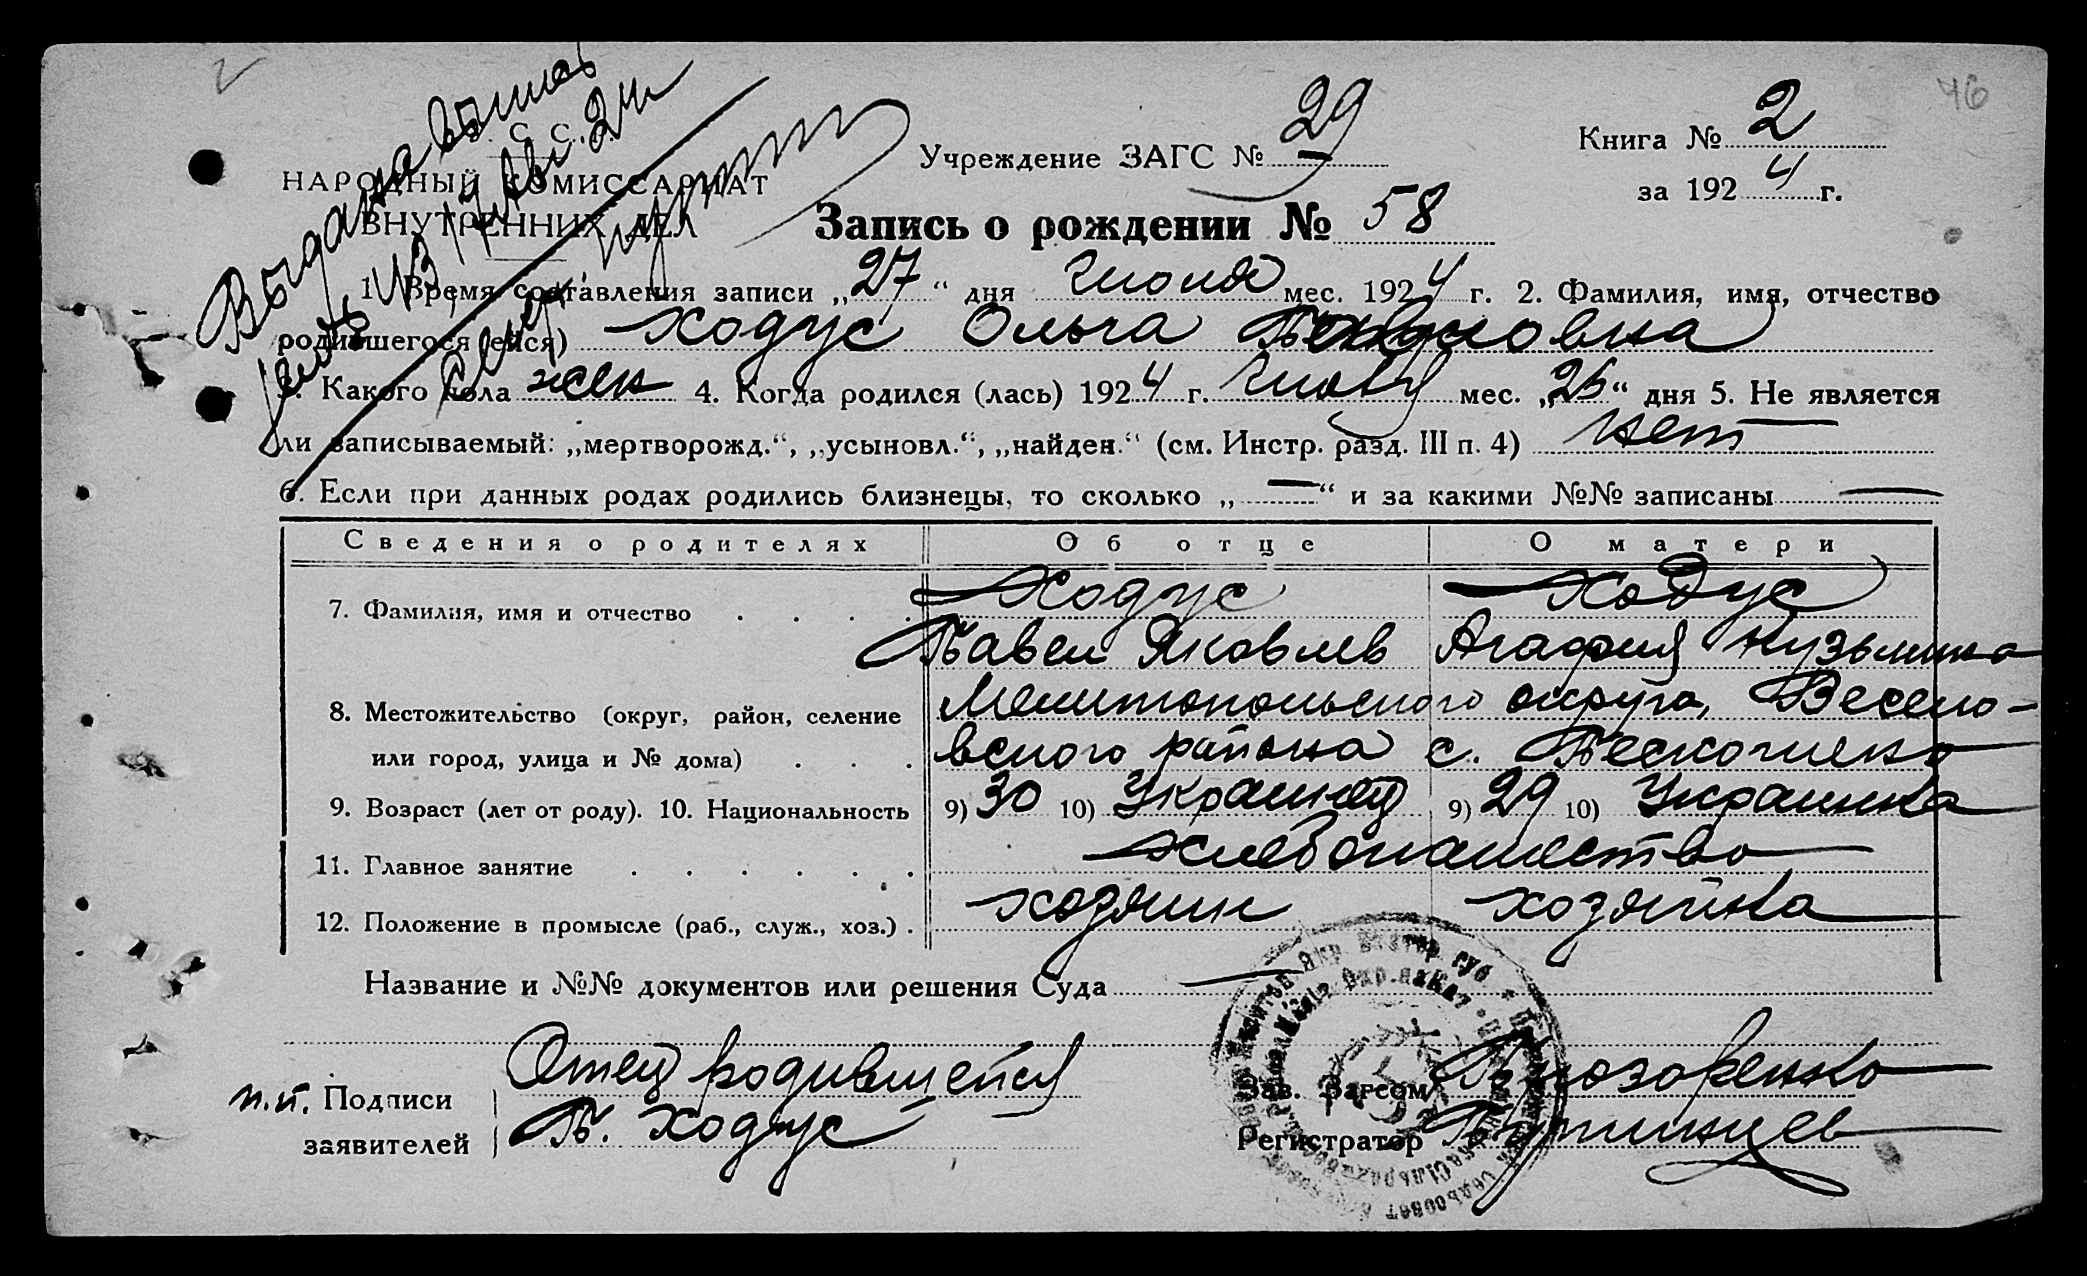 46
Выдана выпись
У. С. С. Р.
НАРОДНЫЙ КОМИССАРИАТ
ВНУТРЕННИХ ДЕЛ
Учреждение ЗАГС № 29
Книга № 2
за 1924 г.
Запись о рождении № 58
1. Время составления записи „27“ дня Июня мес. 1924 г. 2. Фамилия, имя, отчество
родившегося (ейся) Ходус Ольга Павловна
3. Какого пола жен 4. Когда родился (лась) 1924 г. Июня мес. „26“ дня 5. Не является
ли записываемый: „мертворожд.“, „усыновл.“, „найден.“ (см. Инстр. разд. III п. 4) нет
6. Если при данных родах родились близнецы, то сколько „—“ и за какими №№ записаны —
Сведения о родителях Об отце О матери
7. Фамилия, имя и отчество Ходус Ходус
Павел Яковлев Агафия Кузьмина
8. Местожительство (округ, район, селение Мелитопольского округа, Весело-
или город, улица и № дома) вского района с.
9. Возраст (лет от роду). 10. Национальность 9) 30 10) Украинец 9) 29 10) Украинка
11. Главное занятие хлебопашество
12. Положение в промысле (раб., служ., хоз.) хозяин хозяйка
Название и №№ документов или решения Суда —
п.п. Подписи заявителей Отец родившейся
П. Ходус
Зав. Загсом
Регистратор